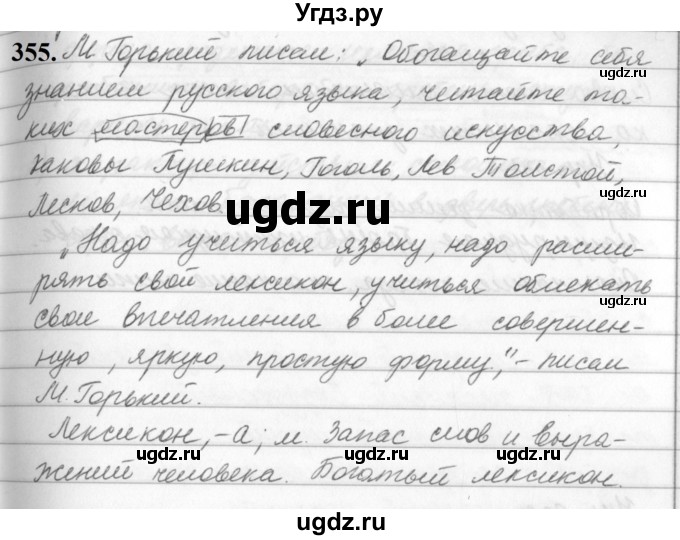 Угдз.ру
355. М. Горький писал: „Обогащайте себя
знанием русского языка, читайте та-
ких мастеров словесного искусства,
каковы Пушкин, Гоголь, Лев Толстой,
Лесков, Чехов
„Надо учиться языку, надо расши-
рять свой лексикон, учиться облекать
свои впечатления в более совершен-
ную, яркую, простую форму," - писал
М. Горький.
Лексикон, -а; м. Запас слов и выра-
жений человека. Богатый лексикон.
ugdz.ru
ugdz.ru
ugdz.ru
ugdz.ru
ugdz.ru
ugdz.ru
ugdz.ru
ugdz.ru
ugdz.ru
ugdz.ru